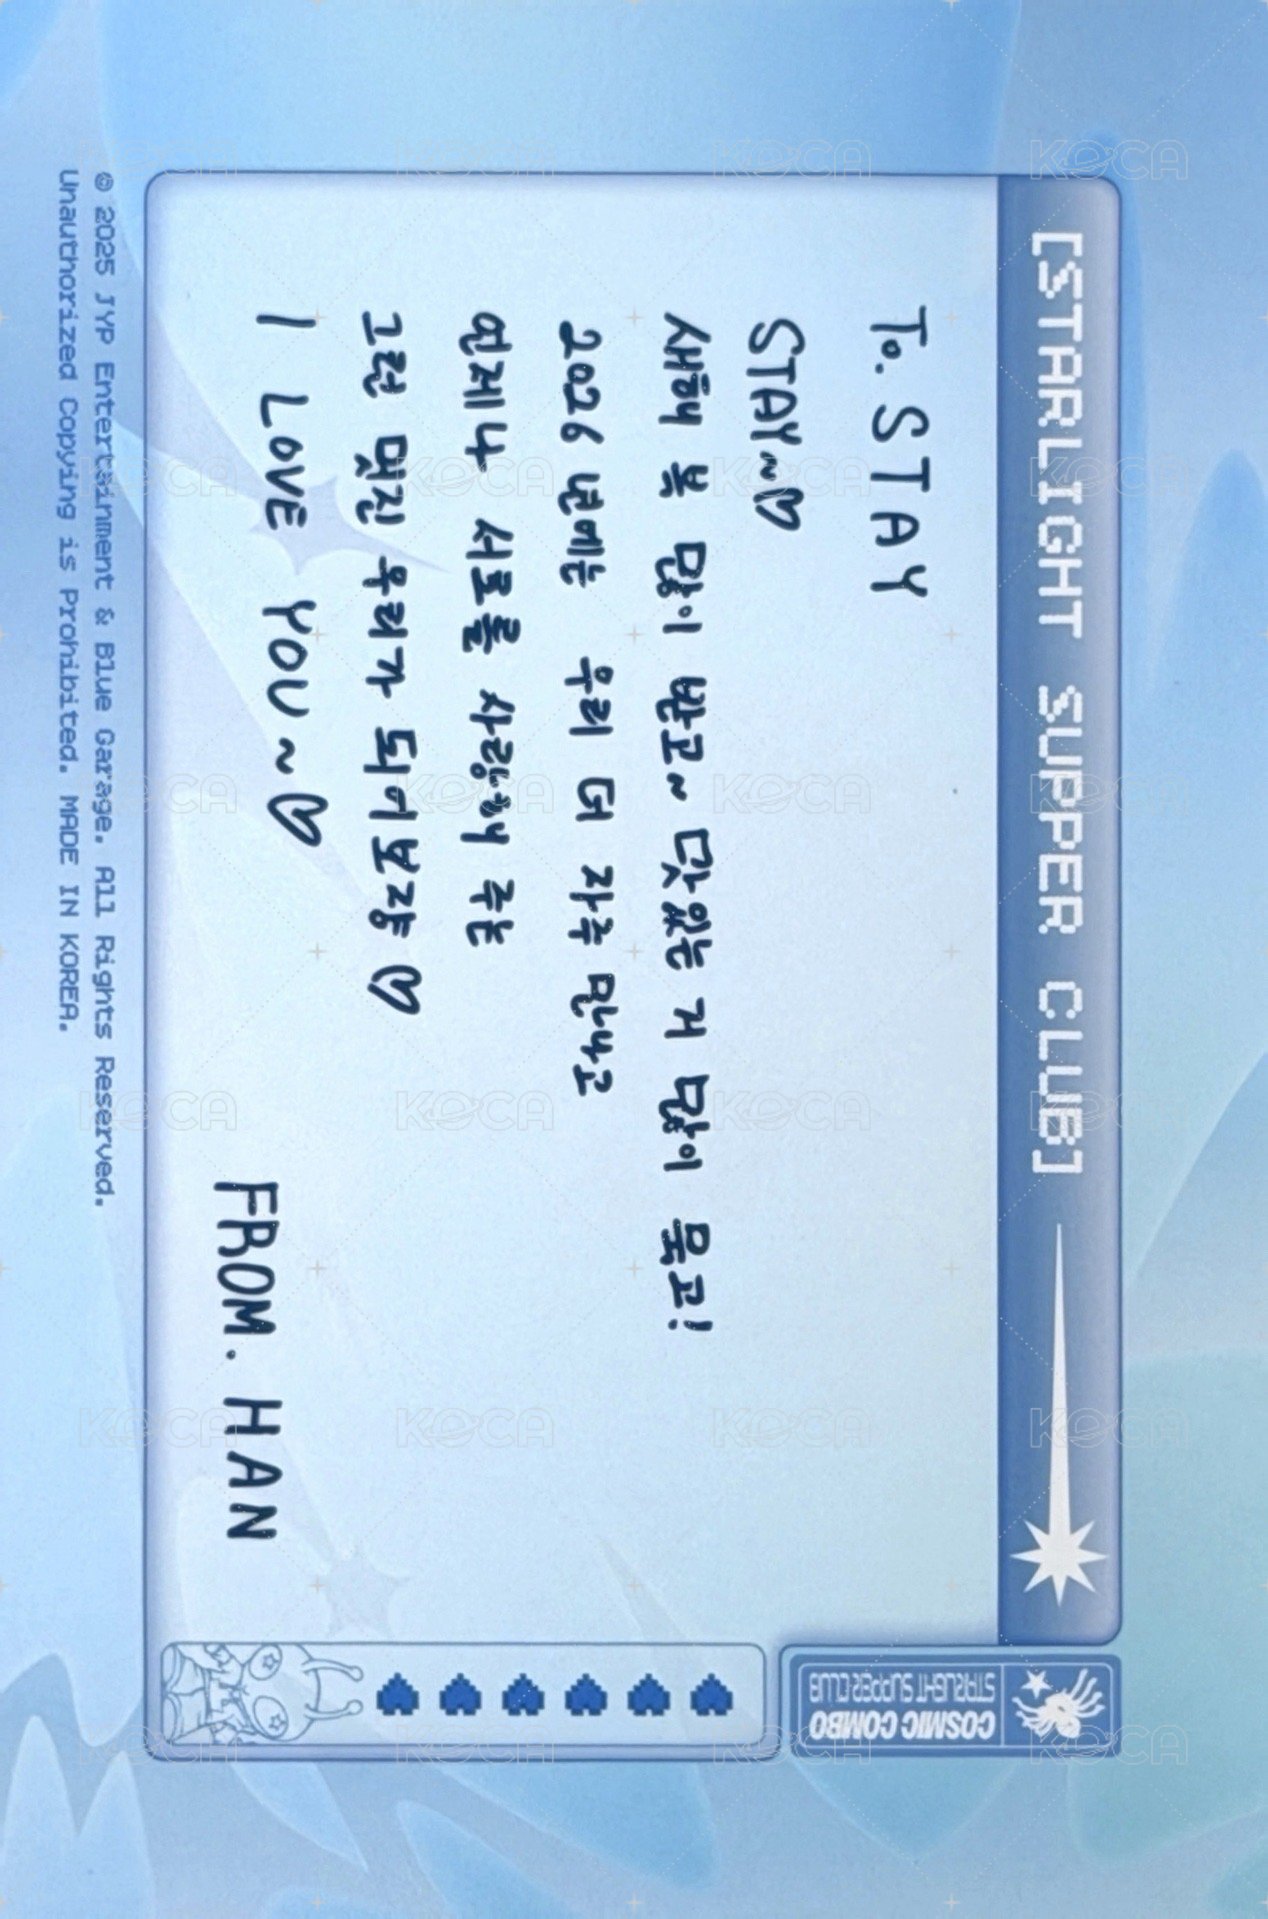 [STARLIGHT SUPPER CLUB]
To. STAY
STAY~♡
새해 복 많이 받고~ 맛있는 거 많이 묵고!
2026년에는 우리 더 자주 만나고
언제나 서로를 사랑해 주는
그런 멋진 우리가 되어보쟝 ♡
I LOVE YOU~♡
FROM. HAN
COSMIC COMBO
STARLIGHT SUPPER CLUB
© 2025 JYP Entertainment & Blue Garage. All Rights Reserved.
Unauthorized Copying is Prohibited. MADE IN KOREA.
KOCA